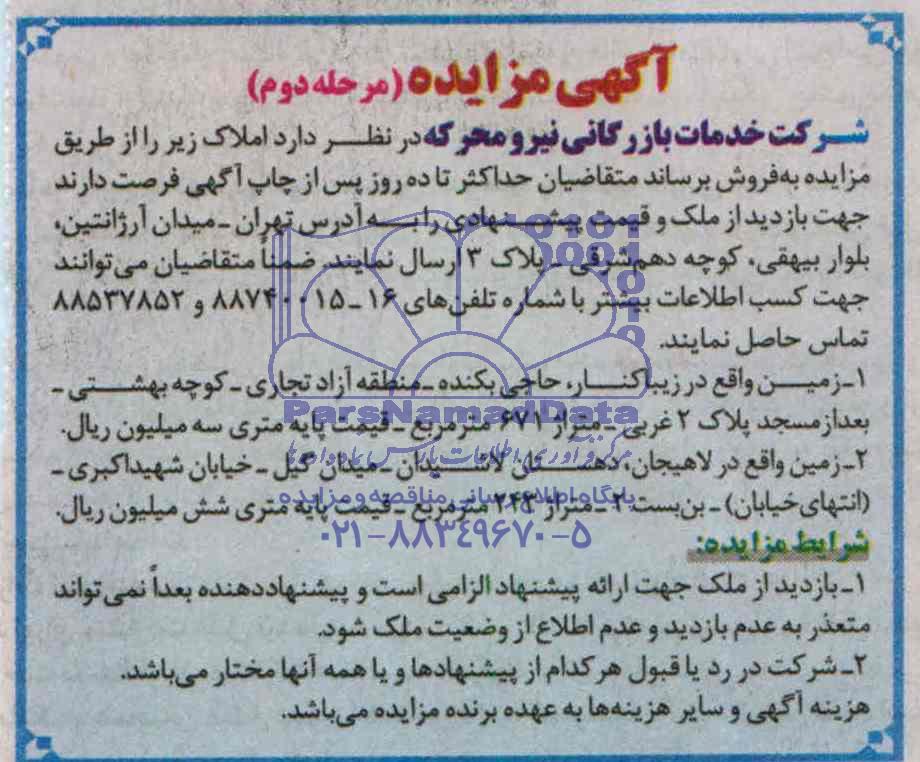 آگهی مزایده (مرحله دوم)
شرکت خدمات بازرگانی نیرو محرکه در نظر دارد املاک زیر را از طریق
مزایده به‌فروش برساند متقاضیان حداکثر تا ده روز پس از چاپ آگهی فرصت دارند
جهت بازدید از ملک و قیمت پیشنهادی را به آدرس تهران ـ میدان آرژانتین،
بلوار بیهقی، کوچه دهم‌شرقی ـ پلاک ۳ ارسال نمایند. ضمناً متقاضیان می‌توانند
جهت کسب اطلاعات بیشتر با شماره تلفن‌های ۱۶ ـ ۸۸۷۴۰۰۱۵ و ۸۸۵۳۷۸۵۲
تماس حاصل نمایند.
۱ـ زمین واقع در زیباکنار، حاجی بکنده ـ منطقه آزاد تجاری ـ کوچه بهشتی ـ
بعداز مسجد پلاک ۲ غربی ـ متراژ ۶۷۱ مترمربع ـ قیمت پایه متری سه میلیون ریال.
ParsNamadData
۲ـ زمین واقع در لاهیجان، دهستان لاشیدان ـ میدان گیل ـ خیابان شهیداکبری ـ
(انتهای خیابان) ـ بن‌بست ۲ ـ متراژ ۲۴۳ مترمربع ـ قیمت پایه متری شش میلیون ریال.
پایگاه اطلاع رسانی مناقصه و مزایده
۰۲۱-۸۸۳۴۹۶۷۰-۵
شرایط مزایده:
۱ـ بازدید از ملک جهت ارائه پیشنهاد الزامی است و پیشنهاددهنده بعداً نمی‌تواند
متعذر به عدم بازدید و عدم اطلاع از وضعیت ملک شود.
۲ـ شرکت در رد یا قبول هر کدام از پیشنهادها و یا همه آنها مختار می‌باشد.
هزینه آگهی و سایر هزینه‌ها به عهده برنده مزایده می‌باشد.